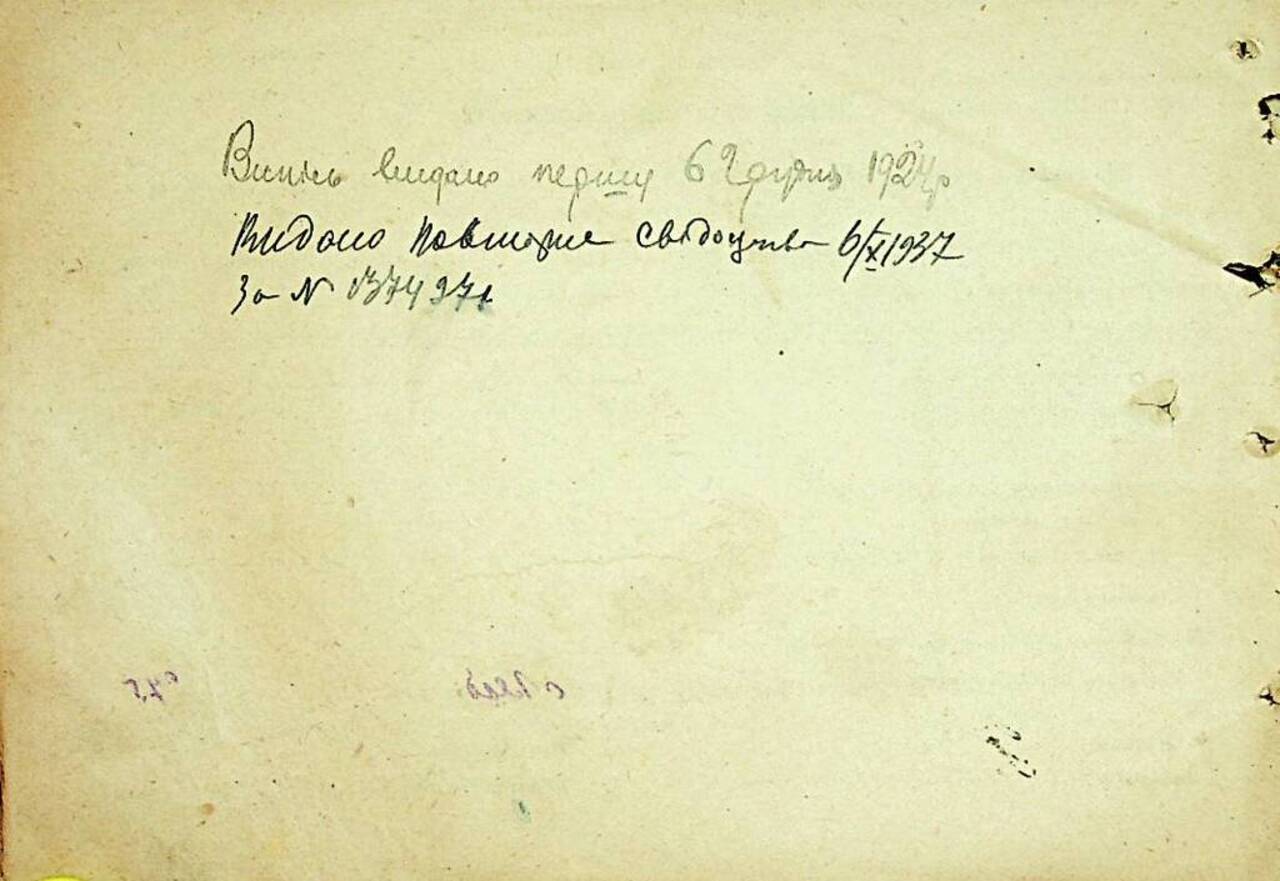 Випись видано першу 6 Грудня 1924р
Видано повторне свідоцтво 6/X 1937
За N 1374